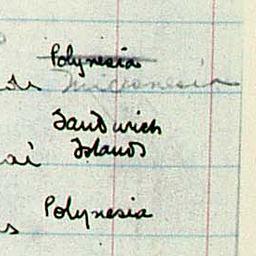 Polynesia
Micronesia
Sandwich
Islands
ai
Polynesia